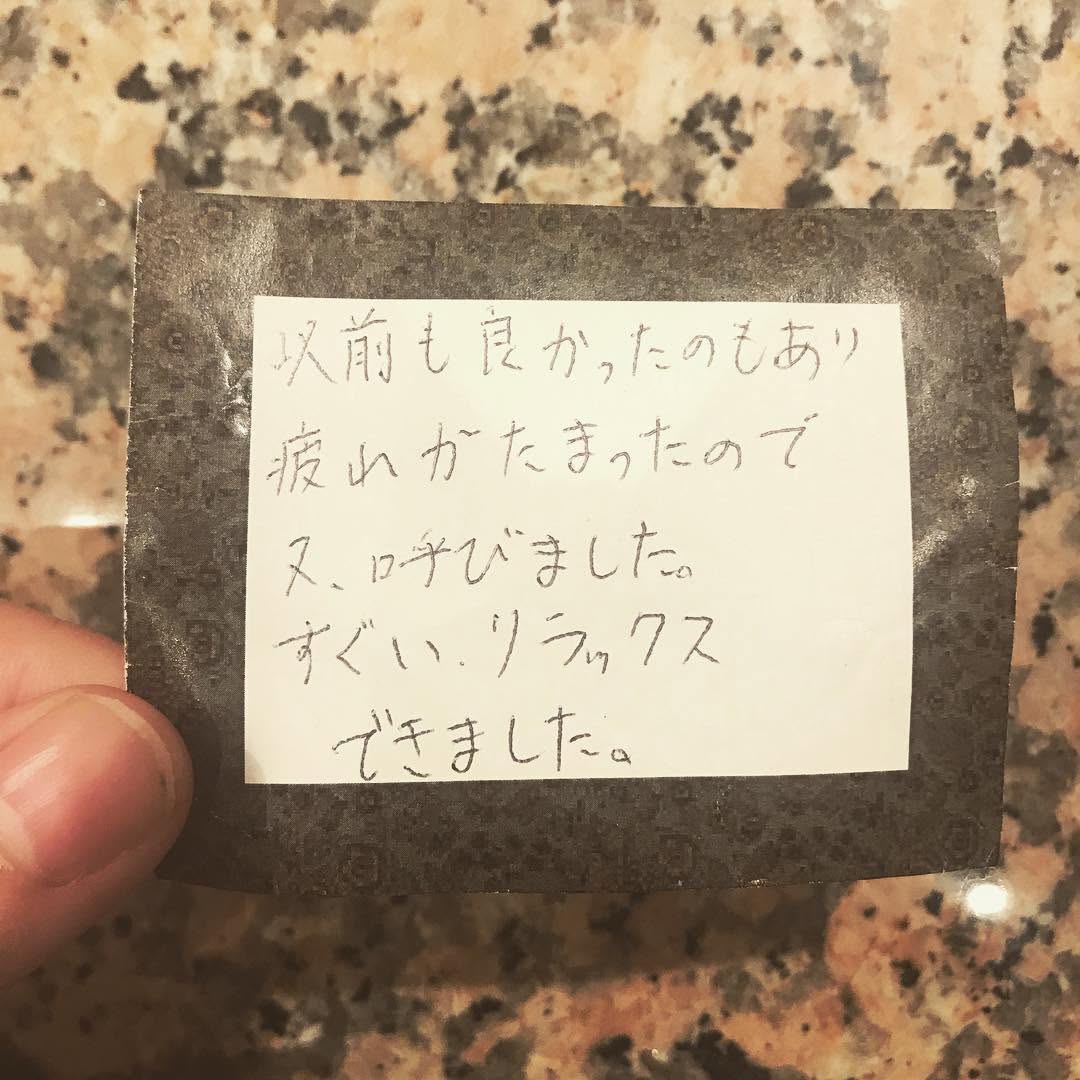 以前も良かったのもあり
疲れがたまったので
又、呼びました。
すぐい、リラックス
できました。